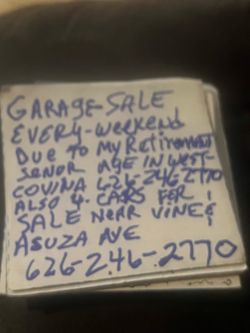 GARAGE-SALE
EVERY-weekend
Due to My Retirement
SENOR AGE IN WEST-
COVINA 626-246-2770
ALSO 4-CARS FOR !
SALE Near VINE &
ASUZA AVE
626-246-2770